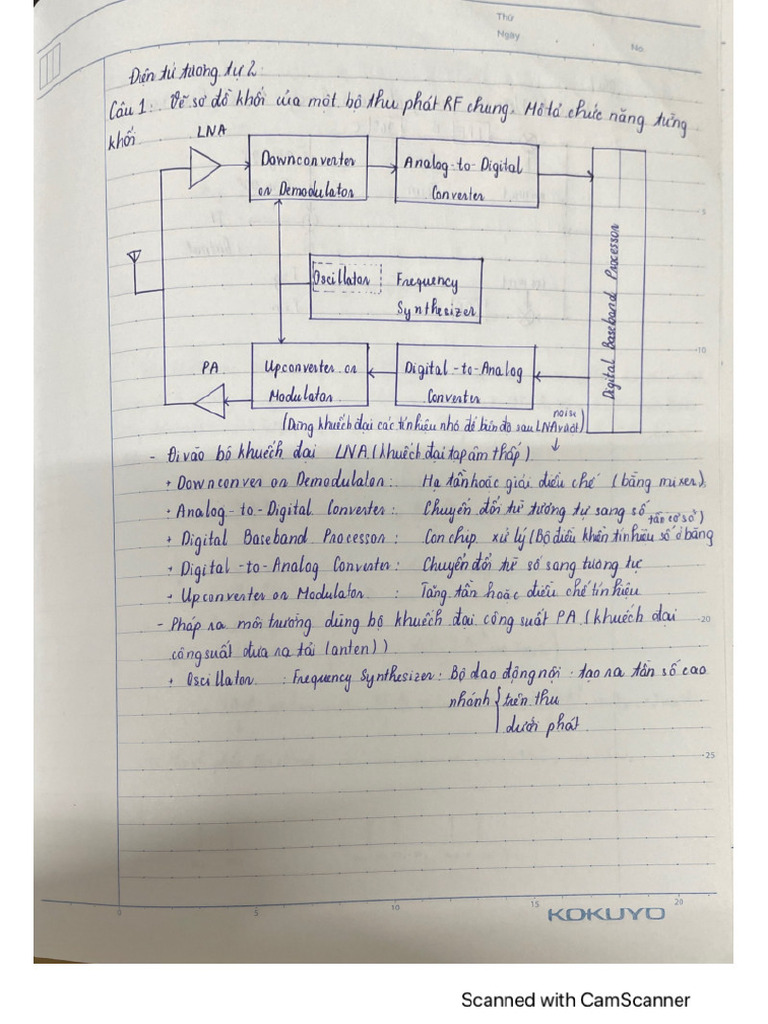 Thứ
Ngày
No.
Điện tử tương tự 2:
Câu 1: Vẽ sơ đồ khối của một bộ thu phát RF chung. Mô tả chức năng từng
khối
LNA
Downconverter
or Demodulator
Analog-to-Digital
Converter
Digital Baseband Processor
Oscillator
Frequency
Synthesizer
PA
Upconverter or
Modulator
Digital-to-Analog
Converter
noise
(Dùng khuếch đại các tín hiệu nhỏ để biên độ sau LNA
- Đi vào bộ khuếch đại LNA (khuếch đại tạp âm thấp)
+ Downconver or Demodulator: Hạ tần hoặc giải điều chế (bằng mixer)
+ Analog-to-Digital Converter: Chuyển đổi từ tương tự sang số
tần cơ sở)
+ Digital Baseband Processor: Con chip xử lý (Bộ điều khiển tín hiệu số ở băng
+ Digital-to-Analog Converter: Chuyển đổi từ số sang tương tự
+ Upconverter or Modulator : Tăng tần hoặc điều chế tín hiệu
- Pháp ra môi trường dùng bộ khuếch đại công suất PA (khuếch đại
công suất đưa ra tải (anten))
+ Oscillator : Frequency Synthesizer: Bộ dao động nội: tạo ra tần số cao
nhánh { trên thu
dưới phát
5
10
15
20
25
0
5
10
15
20
KOKUYO
Scanned with CamScanner